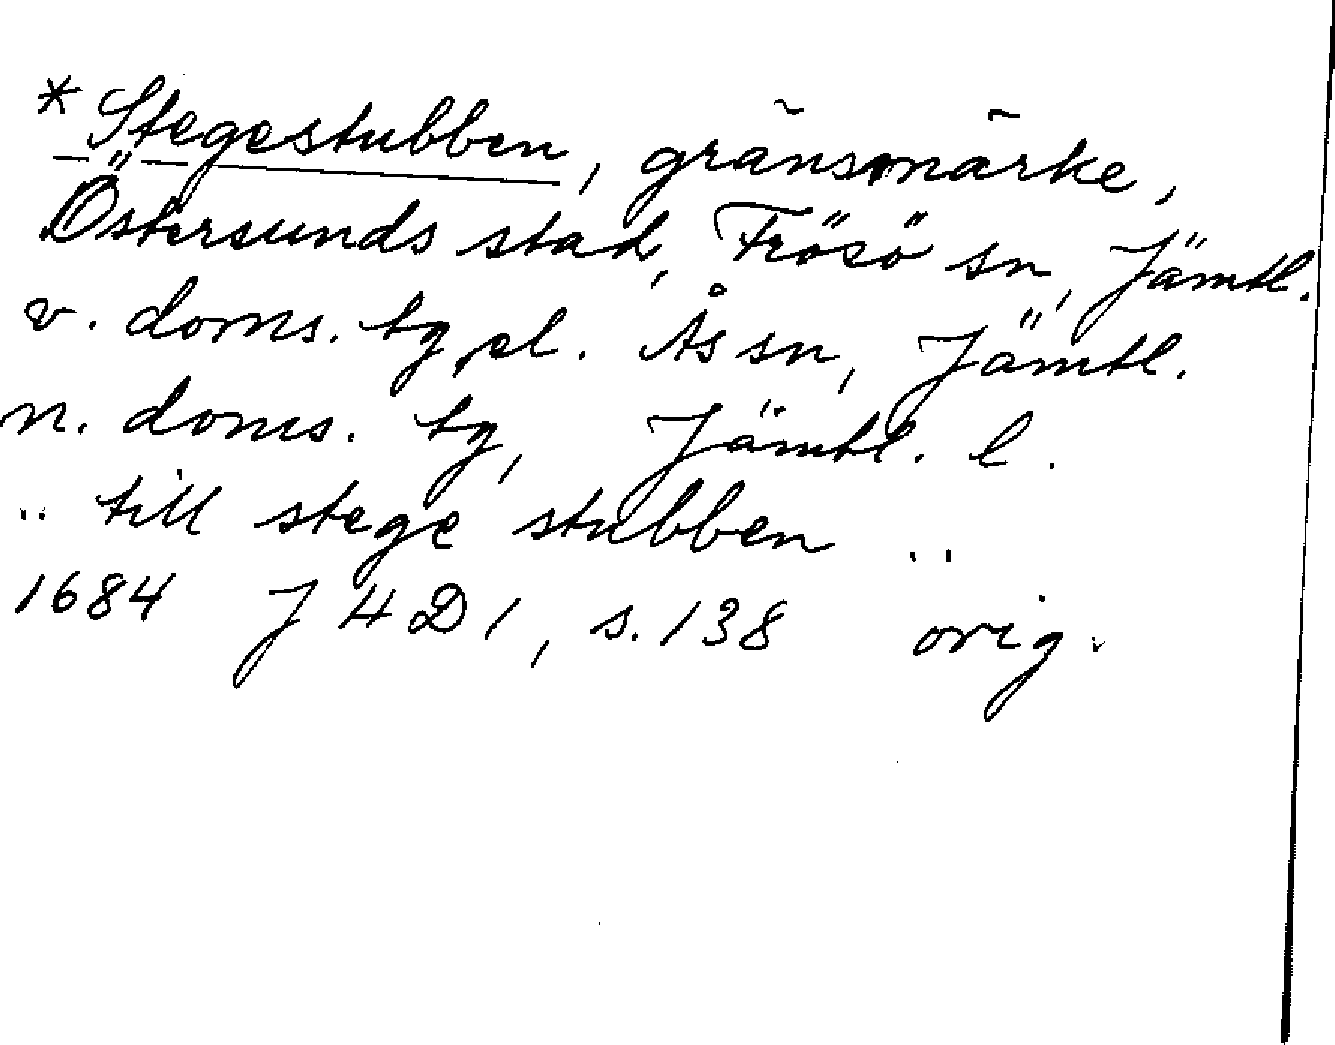 *Stegestubben, gränsmärke,
Östersunds stad, Frösö sn, Jämtl.
v. doms. tg, el. Ås sn, Jämtl.
n. doms. tg, Jämtl. l.
.. till stege stubben ..
1684 J 4 D 1, s. 138 orig.